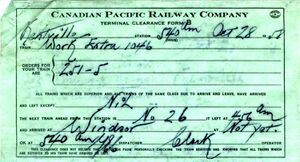 CANADIAN PACIFIC RAILWAY COMPANY
TERMINAL CLEARANCE FORM B
Kentville STATION 540 Am Oct 28 1958
TRAIN Work Extra 1046
ORDERS FOR YOUR TRAIN ARE
251-5
ALL TRAINS WHICH ARE SUPERIOR AND ALL TRAINS OF THE SAME CLASS DUE TO ARRIVE AND LEAVE, HAVE ARRIVED AND
LEFT EXCEPT Nil
THE NEXT TRAIN AHEAD FROM THIS STATION IS No 26 IT LEFT AT 456 am
AND ARRIVED AT Windsor AT Not yet.
OK AT 540 am DISPATCHER Clark OPERATOR